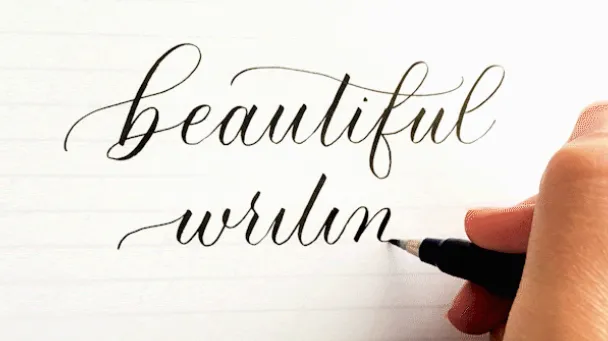 beautiful
writin